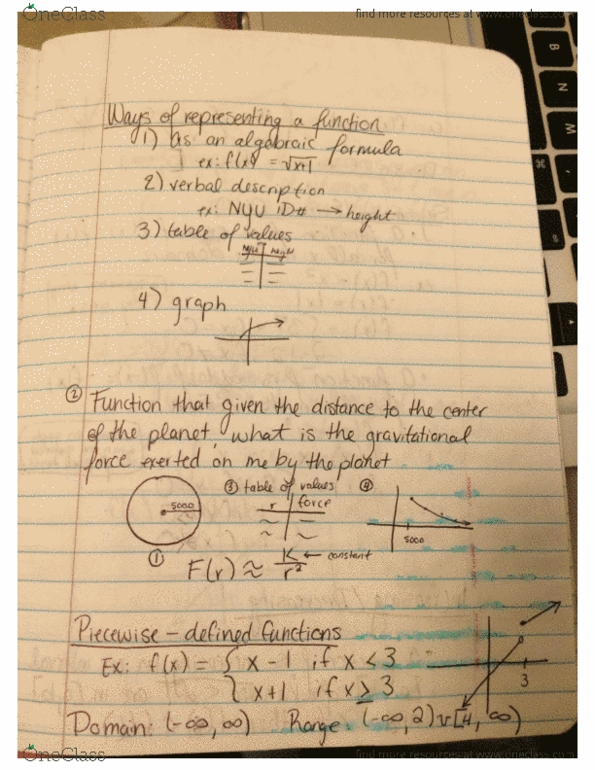 OneClass
find more resources at www.oneclass.com
Ways of representing a function
1) as an algebraic formula
ex: f(x) = √x+1
2) verbal description
ex: NYU iD# → height
3) table of values
4) graph
② Function that given the distance to the center
of the planet, what is the gravitational
force exerted on me by the planet
③ table of values ④
r force
5000
5000
①
F(r) ≈ K/r² ← constant
Piecewise - defined functions
Ex: f(x) = { x - 1 if x < 3
x + 1 if x ≥ 3
3
Domain: (-∞, ∞) Range: (-∞, 2) ∪ [4, ∞)
OneClass
find more resources at www.oneclass.com